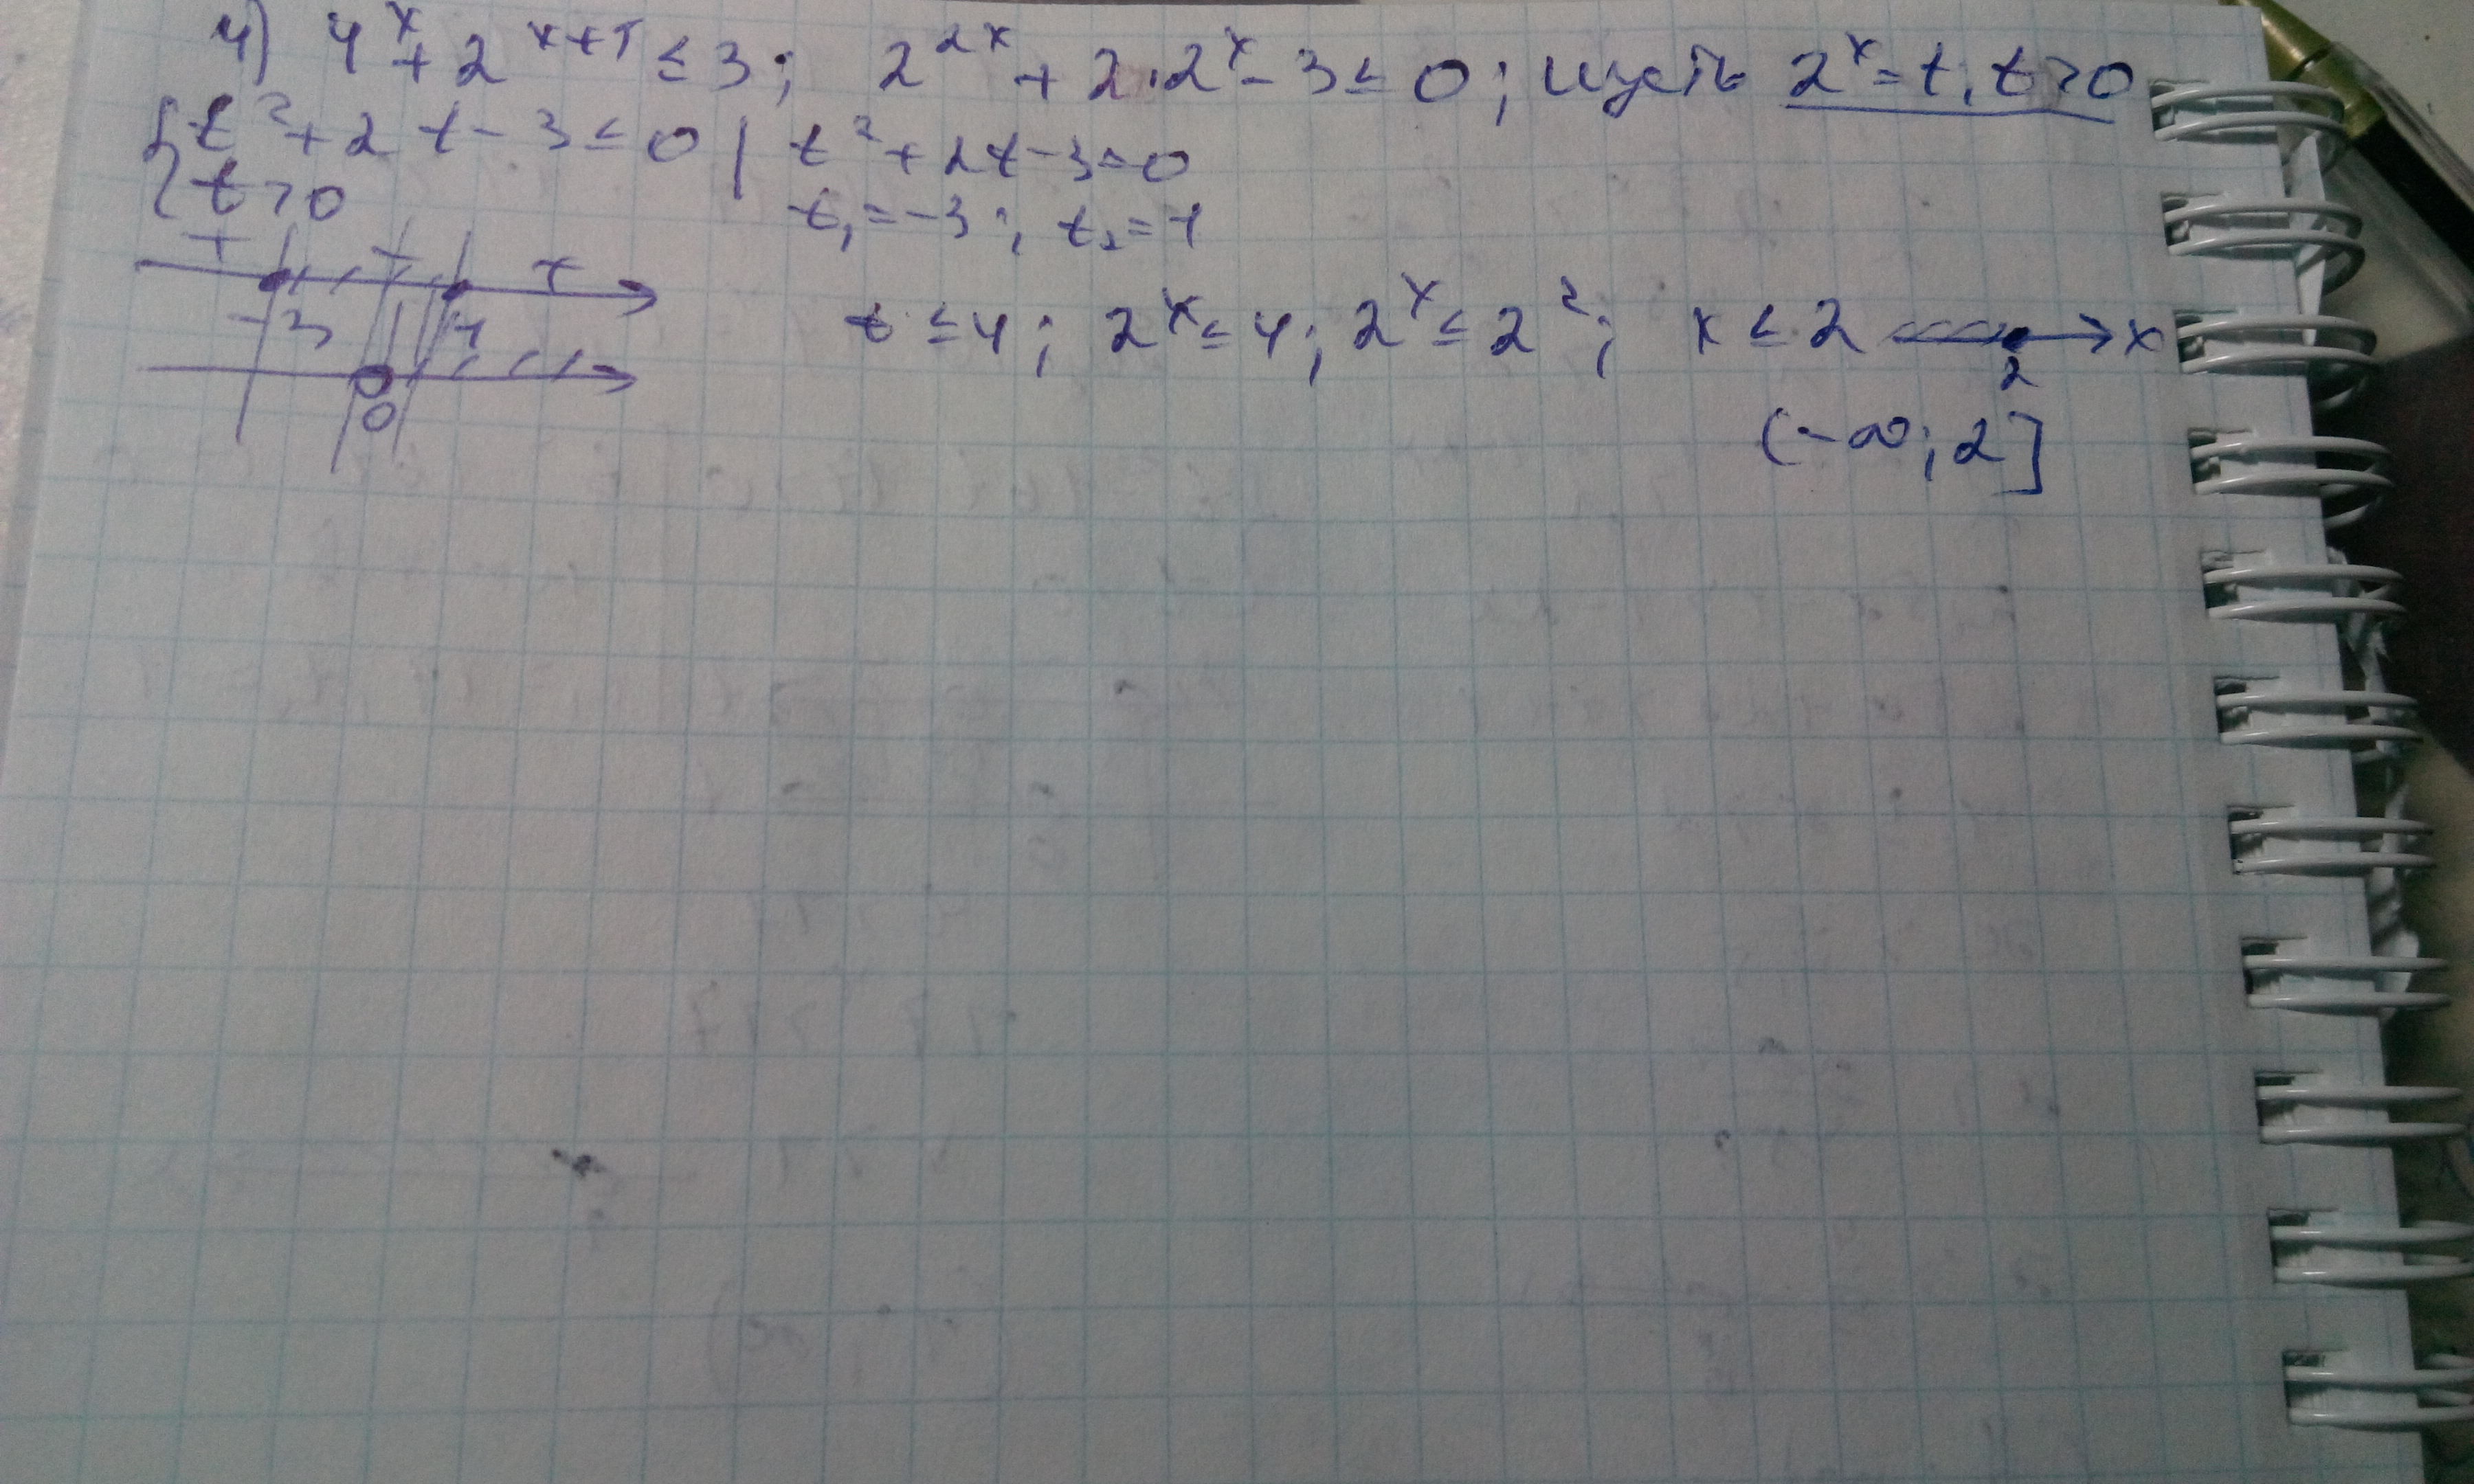 4) 4^x + 2^(x+1) ≤ 3; 2^(2x) + 2·2^x - 3 ≤ 0; пусть 2^x = t, t > 0
{ t² + 2t - 3 ≤ 0 | t² + 2t - 3 = 0
{ t > 0 t₁ = -3; t₂ = 1
+ - +
-3 1
t ≤ 4; 2^x ≤ 4; 2^x ≤ 2²; x ≤ 2 x
2
0
(-∞; 2]